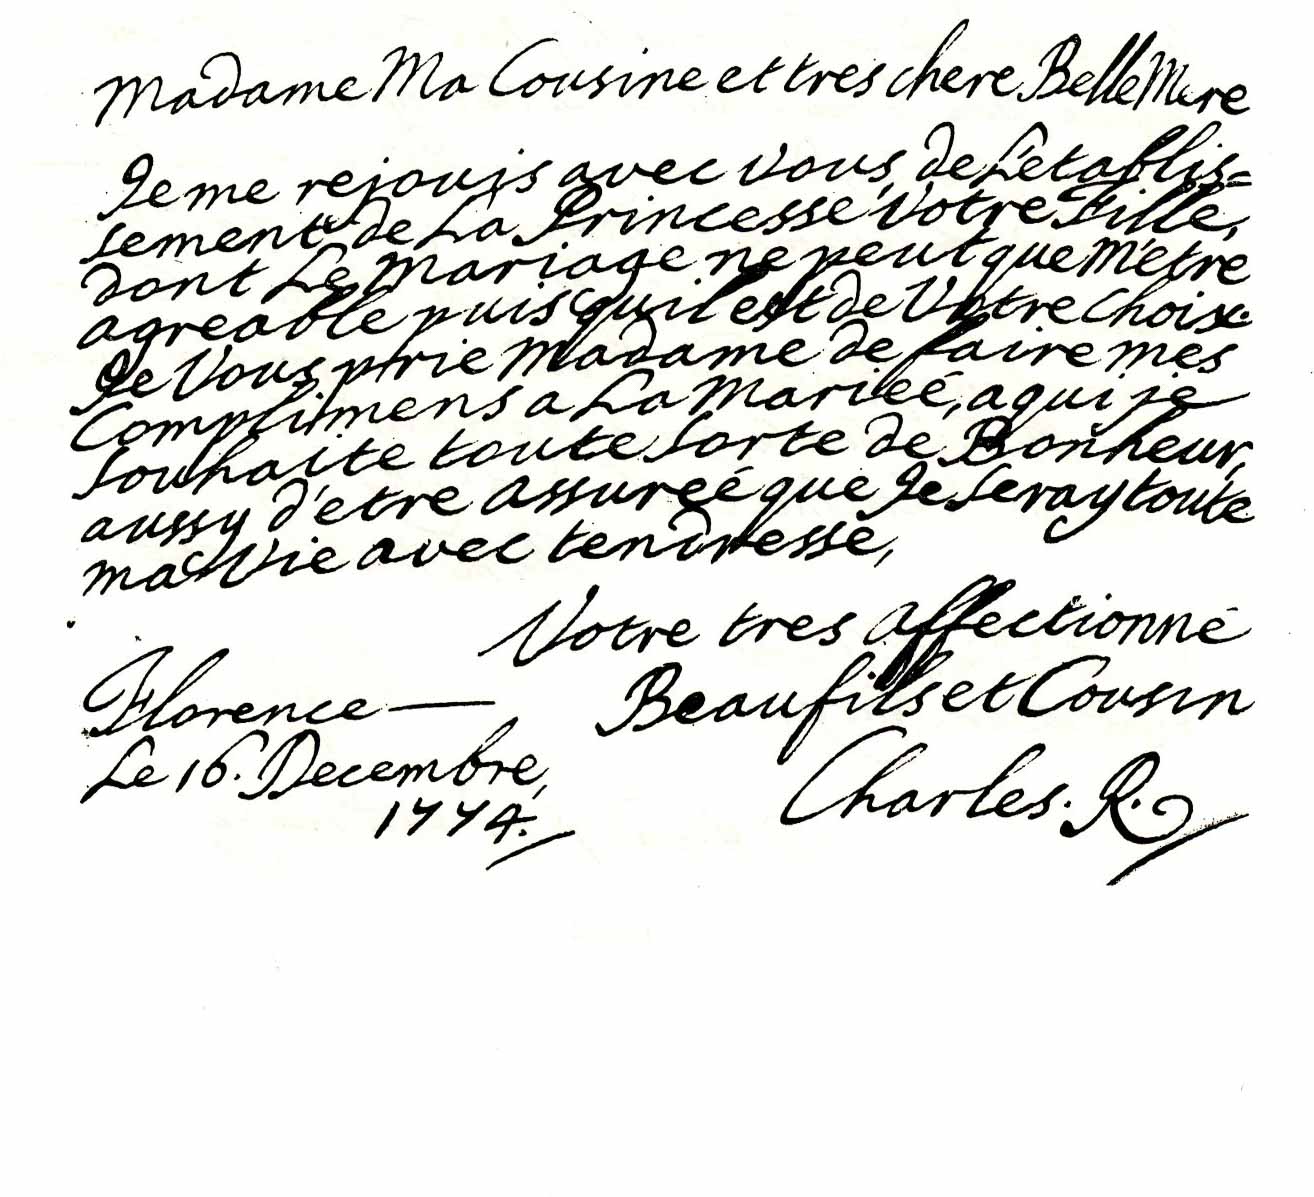 Madame Ma Cousine et tres chere Belle Mere
Je me rejouis avec vous, de L'etablis=
sement de La Princesse Votre Fille,
dont Le Mariage ne peut que M'etre
agreable puis qu'il est de Votre Choix.
Je Vous prie Madame de faire mes
Complimens a La Marieé, a qui je
souhaite toute sorte de Bonheur,
aussy d'etre assureé que Je seray toute
ma Vie avec tendresse,
Votre tres affectionné
Beaufils et Cousin
Florence —
Le 16. Decembre,
1774.
Charles. R.